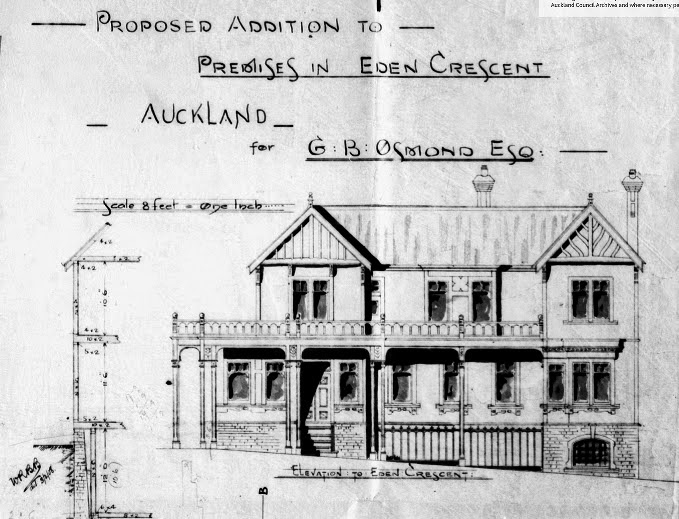 Auckland Council Archives and where necessary pe
PROPOSED ADDITION TO
PREMISES IN EDEN CRESCENT
AUCKLAND
for G: B: OSMOND ESQ:
Scale 8 feet = One Inch
4x2
4x2
4x2
4x2
10x2
5x2
5x2
10x2
4x4
ELEVATION: TO EDEN CRESCENT:
B